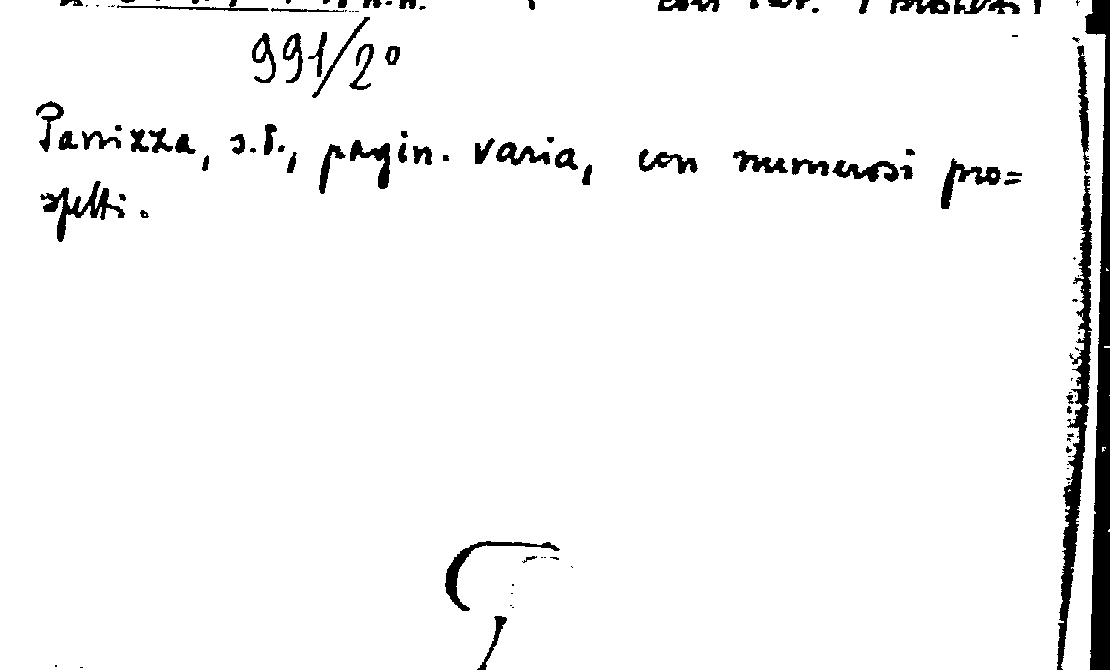 991/2°
Panizza, s.l., pagin. varia, con numerosi pro=
spetti.